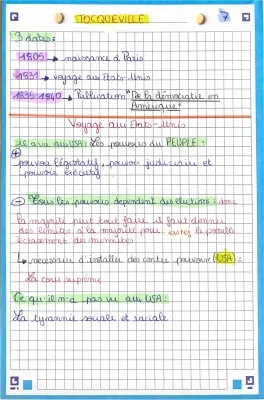 TOCQUEVILLE
7
3 dates:
1805 → naissance à Paris
1831 → voyage aux États-Unis
1835-1840 → Publication "De la démocratie en
Amérique"
Voyage aux États-Unis
il a vu aux USA: Les pouvoirs du PEUPLE:
+
pouvoir législatif, pouvoir judiciaire et
pouvoir exécutif
- Tous les pouvoirs dépendent des élections: donc
la majorité peut tout faire il faut donner
des limites à la majorité pour évitez le possible
écrasement des minorités
↳ nécessaire d'installer des contre pouvoir (USA):
La cour suprême
Ce qu'il n'a pas vu aux USA:
La tyrannie sociale et raciale.